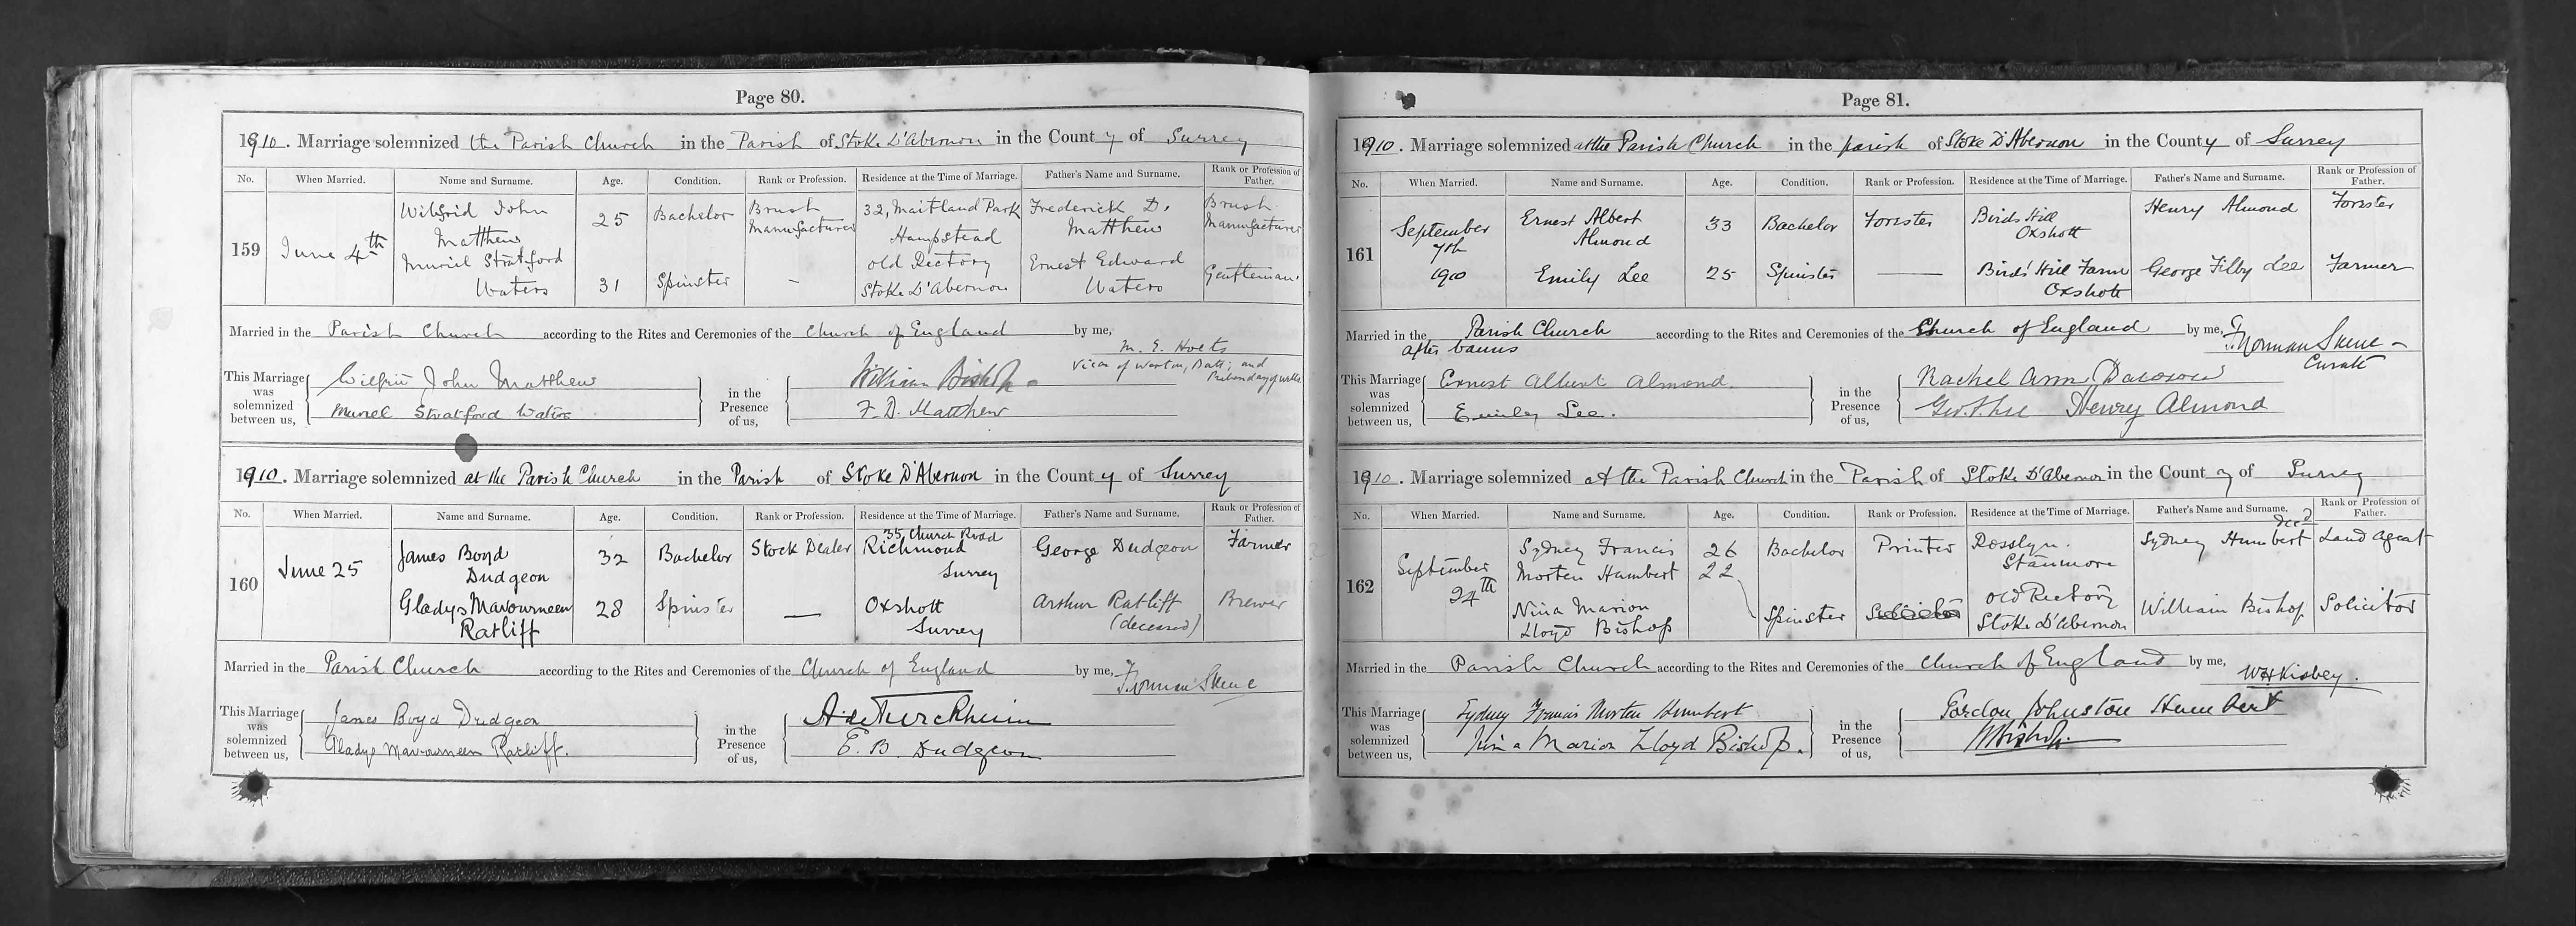 Page 80.
1910. Marriage solemnized the Parish Church in the Parish of Stoke D'Abernon in the County of Surrey
No. When Married. Name and Surname. Age. Condition. Rank or Profession. Residence at the Time of Marriage. Father's Name and Surname. Rank or Profession of Father.
159 June 4th Wilfrid John Matthew 25 Bachelor Brush Manufacturer 32, Maitland Park Hampstead Frederick D. Matthew Brush Manufacturer
Muriel Stratford Waters 31 Spinster – Old Rectory Stoke D'Abernon Ernest Edward Waters Gentleman.
Married in the Parish Church according to the Rites and Ceremonies of the Church of England by me,
M. E. Hoets
Vicar of Weston, Bath; and Prebendary of Wells
This Marriage was solemnized between us,
Wilfrid John Matthew
Muriel Stratford Waters
in the Presence of us,
William Bishop
F. D. Matthew
1910. Marriage solemnized at the Parish Church in the Parish of Stoke D'Abernon in the County of Surrey
No. When Married. Name and Surname. Age. Condition. Rank or Profession. Residence at the Time of Marriage. Father's Name and Surname. Rank or Profession of Father.
160 June 25 James Boyd Dudgeon 32 Bachelor Stock Dealer 35, Church Road Richmond Surrey George Dudgeon Farmer
Gladys Mavourneen Ratliff 28 Spinster — Oxshott Surrey Arthur Ratliff (deceased) Brewer
Married in the Parish Church according to the Rites and Ceremonies of the Church of England by me,
Norman Skene
This Marriage was solemnized between us,
James Boyd Dudgeon
Gladys Mavourneen Ratliff.
in the Presence of us,
E. B. Dudgeon
Page 81.
1910. Marriage solemnized at the Parish Church in the parish of Stoke D'Abernon in the County of Surrey
No. When Married. Name and Surname. Age. Condition. Rank or Profession. Residence at the Time of Marriage. Father's Name and Surname. Rank or Profession of Father.
161 September 7th 1910 Ernest Albert Almond 33 Bachelor Forester Birds Hill Oxshott Henry Almond Forester
Emily Lee 25 Spinster — Birds' Hill Farm Oxshott George Filby Lee Farmer
Married in the Parish Church according to the Rites and Ceremonies of the Church of England by me,
after banns
Norman Skene – Curate
This Marriage was solemnized between us,
Ernest Albert Almond.
Emily Lee.
in the Presence of us,
Rachel Ann
Geo. F. Lee Henry Almond
1910. Marriage solemnized at the Parish Church in the Parish of Stoke D'Abernon in the County of Surrey
No. When Married. Name and Surname. Age. Condition. Rank or Profession. Residence at the Time of Marriage. Father's Name and Surname. Rank or Profession of Father.
162 September 24th Sydney Francis Morten Humbert 26 22 Bachelor Printer Rosslyn. Stanmore Sydney Humbert decd Land Agent
Nina Marion Lloyd Bishop Spinster Solicitor Old Rectory Stoke D'Abernon William Bishop Solicitor
Married in the Parish Church according to the Rites and Ceremonies of the Church of England by me,
W H Kisbey.
This Marriage was solemnized between us,
Sydney Francis Morten Humbert
Nina Marion Lloyd Bishop.
in the Presence of us,
Gordon Johnston Humbert
W Bishop.